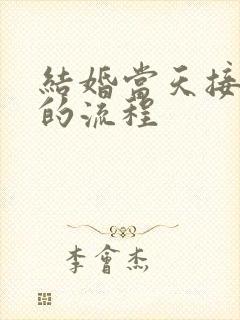 結婚當天接
的流程
李會杰